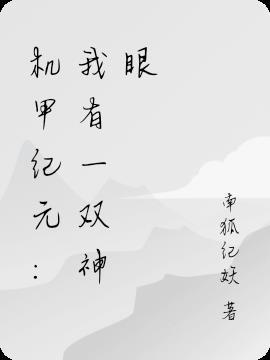 机甲纪元：
我有一双神
眼
南狐纪妖 著